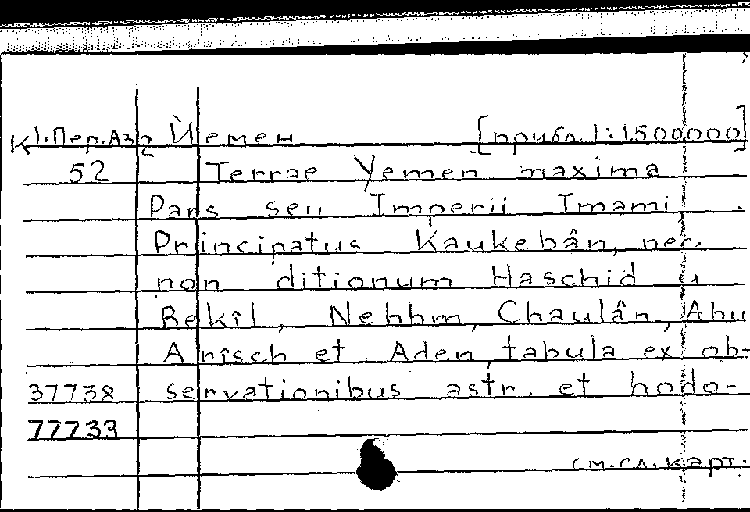 К 1.Пер.Аз2 Йемен [прибл. 1:1500000]
52 Terrae Yemen maxima
Pars seu Imperii Imami,
Principatus Kaukebân, nec
non ditionum Haschid u
Bekîl, Nehhm, Chaulân, Abu
Arîsch et Aden, tabula ex ob-
37738 servationibus astr. et hodo-
77733
см.сл.карт.